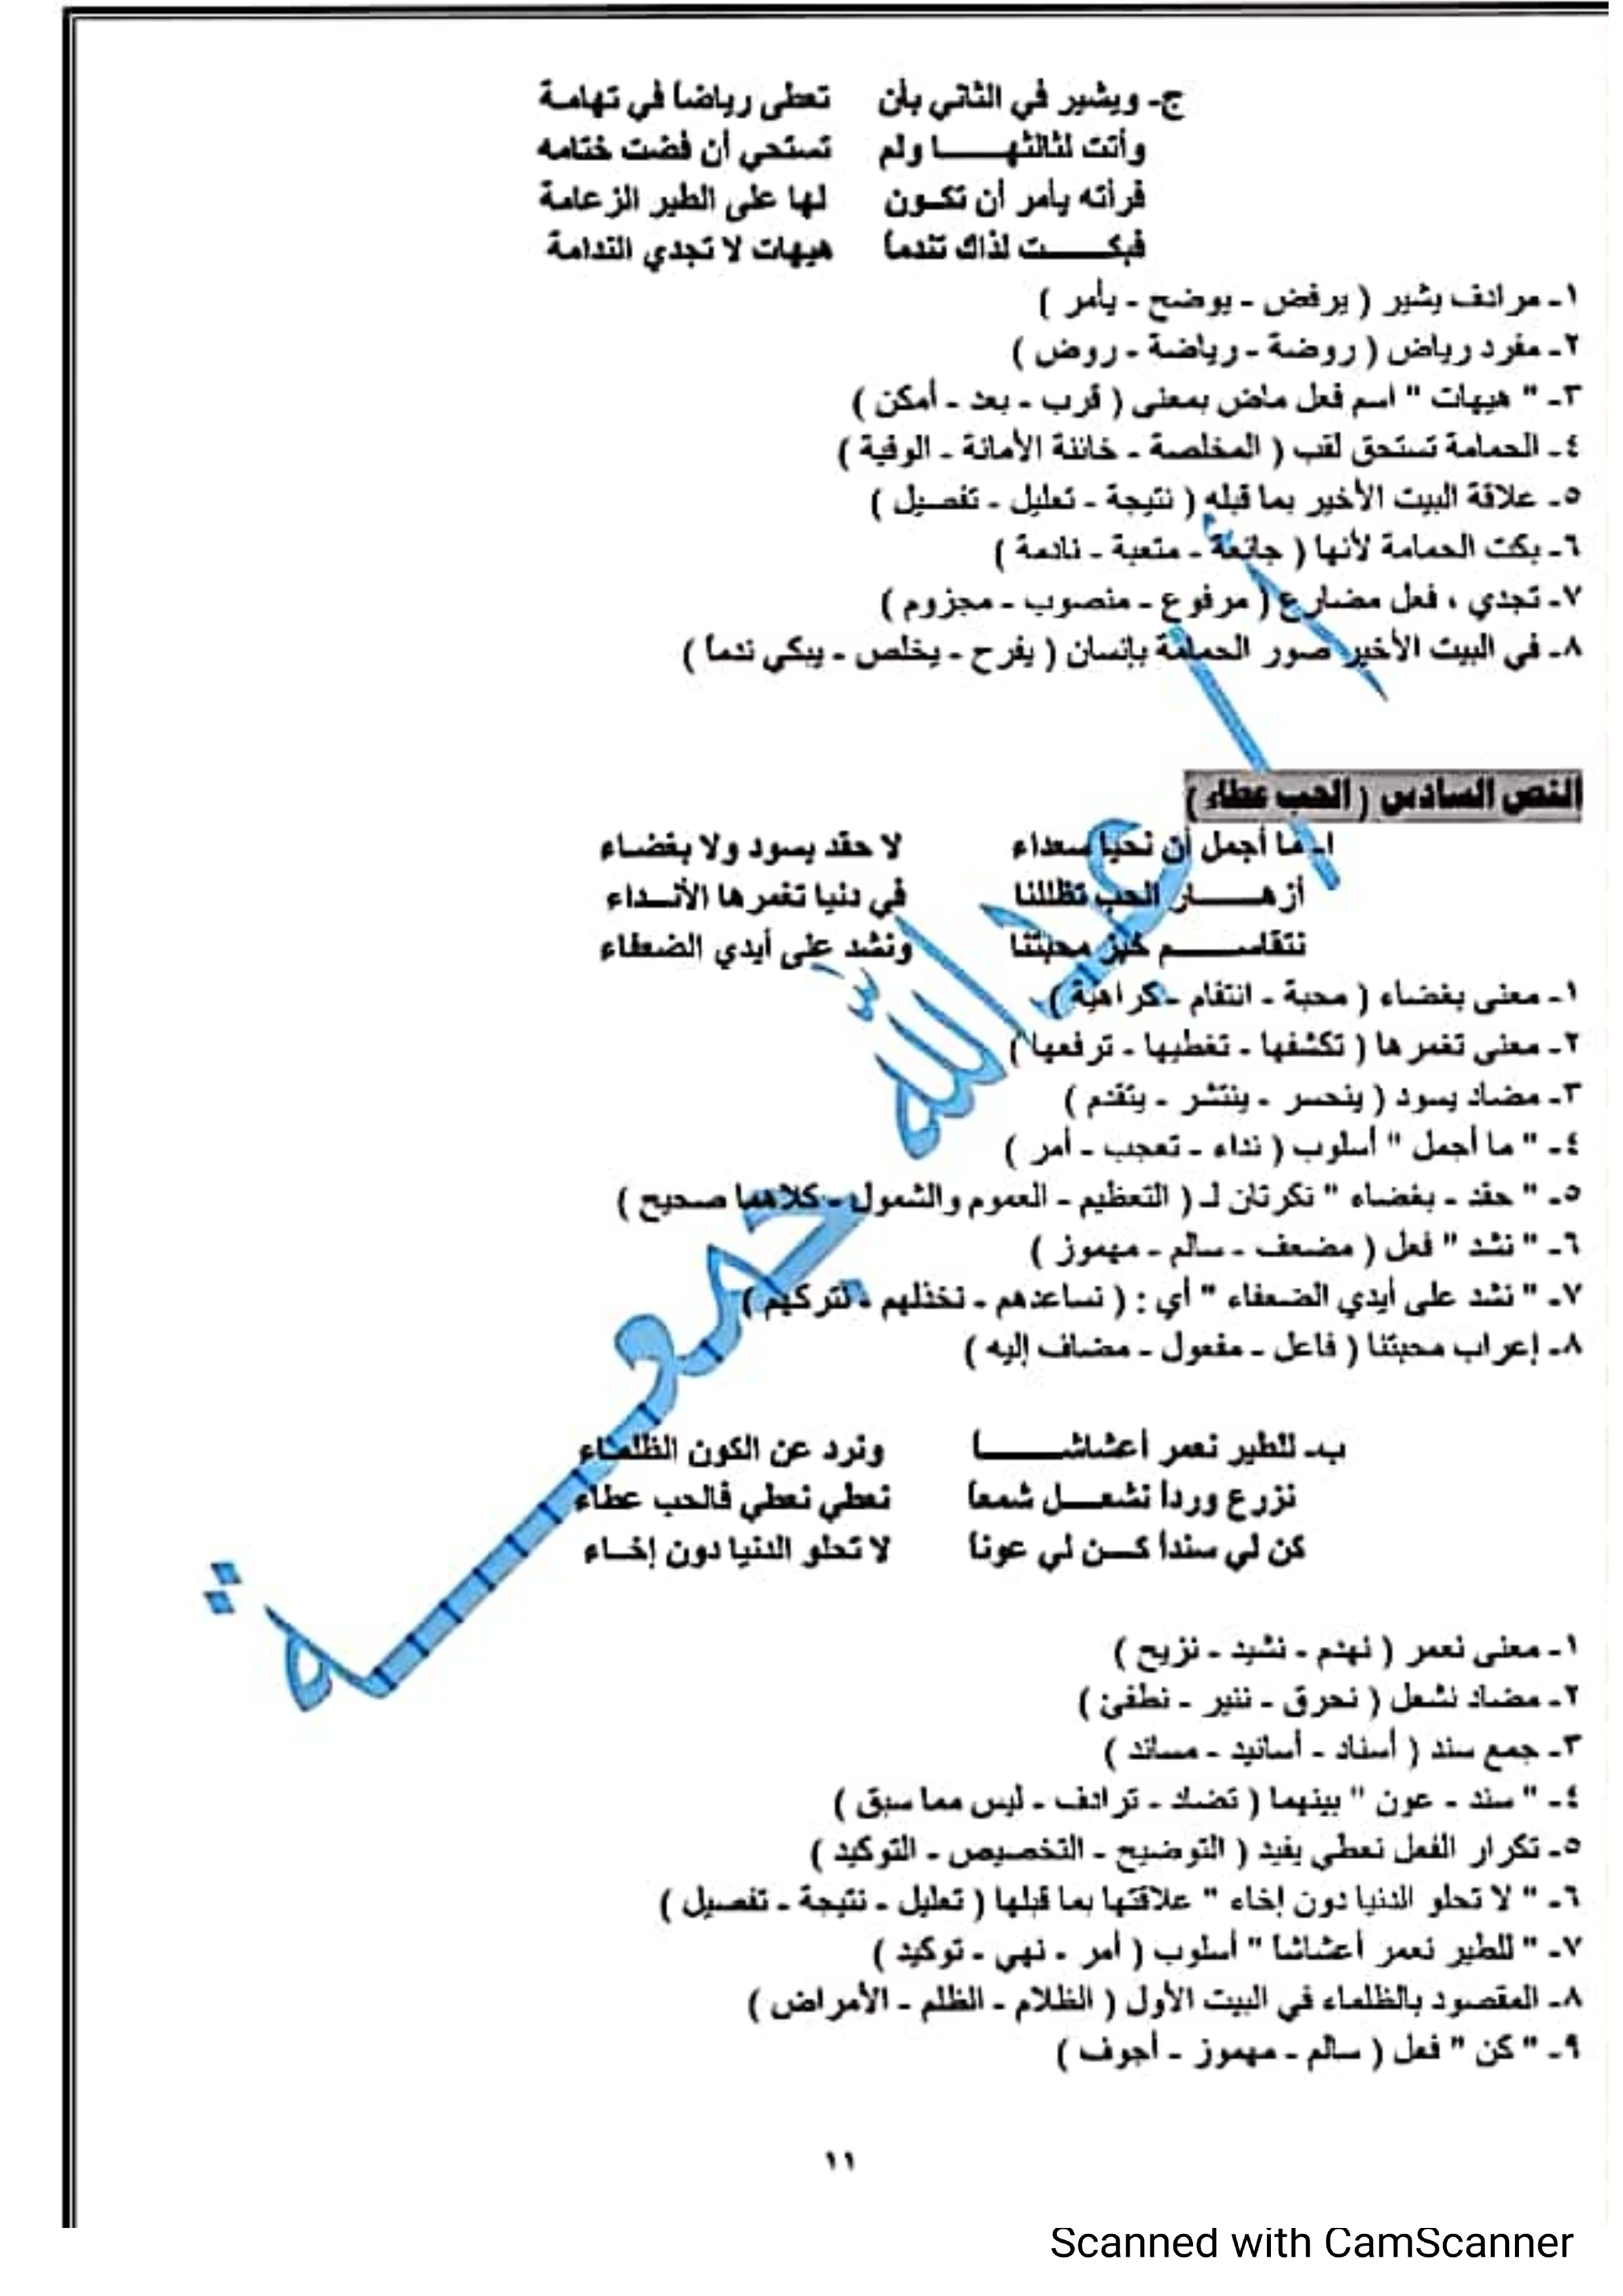 ج- ويشير في الثاني بأن تعطى رياضاً في تهامة
وأتت لثالثهـــــا ولم تستحي أن فضت ختامه
قرأته يأمر أن تكـون لها على الطير الزعامة
فبكــــــت لذاك تندماً هيهات لا تجدي الندامة
١- مرادف يشير ( يرفض - يوضح - يأمر )
٢- مفرد رياض ( روضة - رياضة - روض )
٣- " هيهات " اسم فعل ماض بمعنى ( قرب - بعد - أمكن )
٤- الحمامة تستحق لقب ( المخلصة - خائنة الأمانة - الوفية )
٥- علاقة البيت الأخير بما قبله ( نتيجة - تعليل - تفصيل )
٦- بكت الحمامة لأنها ( جائعة - متعبة - نادمة )
٧- تجدي ، فعل مضارع ( مرفوع - منصوب - مجزوم )
٨- في البيت الأخير صور الحمامة بإنسان ( يفرح - يخلص - يبكي ندماً )
النص السادس ( الحب عطاء )
ا- ما أجمل أن نحيا سعداء لا حقد يسود ولا بغضاء
أزهـــــار الحب تظللنا في دنيا تغمرها الأنـداء
نتقاســـــم خبز محبتنا ونشد على أيدي الضعفاء
١- معنى بغضاء ( محبة - انتقام - كراهية )
٢- معنى تغمرها ( تكشفها - تغطيها - ترفعها )
٣- مضاد يسود ( ينحسر - ينتشر - يتقدم )
٤- " ما أجمل " أسلوب ( نداء - تعجب - أمر )
٥- " حقد - بغضاء " نكرتان لـ ( التعظيم - العموم والشمول - كلاهما صحيح )
٦- " نشد " فعل ( مضعف - سالم - مهموز )
٧- " نشد على أيدي الضعفاء " أي : ( نساعدهم - نخذلهم - نتركهم )
٨- إعراب محبتنا ( فاعل - مفعول - مضاف إليه )
ب- للطير نعمر أعشاشـــــــاً ونرد عن الكون الظلماء
نزرع ورداً نشعـــل شمعاً نعطي نعطي فالحب عطاء
كن لي سنداً كـــن لي عوناً لا تحلو الدنيا دون إخـاء
١- معنى نعمر ( نهدم - نشيد - نزيح )
٢- مضاد نشعل ( نحرق - ننير - نطفئ )
٣- جمع سند ( أسناد - أسانيد - مساند )
٤- " سند - عون " بينهما ( تضاد - ترادف - ليس مما سبق )
٥- تكرار الفعل نعطي يفيد ( التوضيح - التخصيص - التوكيد )
٦- " لا تحلو الدنيا دون إخاء " علاقتها بما قبلها ( تعليل - نتيجة - تفصيل )
٧- " للطير نعمر أعشاشاً " أسلوب ( أمر - نهي - توكيد )
٨- المقصود بالظلماء في البيت الأول ( الظلام - الظلم - الأمراض )
٩- " كن " فعل ( سالم - مهموز - أجوف )
أ / عبدالله جمعة
١١
Scanned with CamScanner